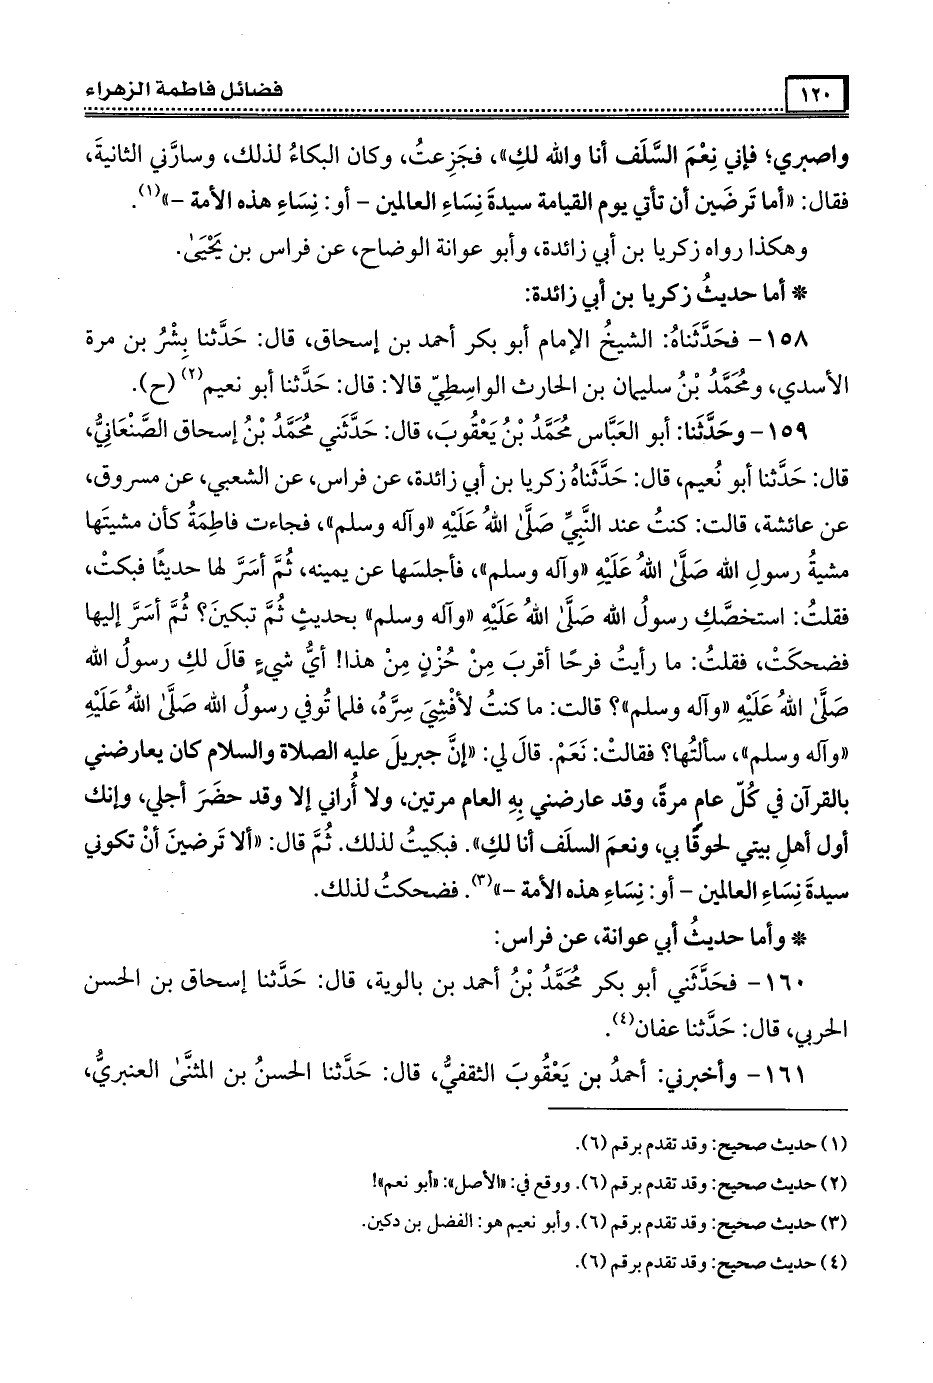 ١٢٠ فضائل فاطمة الزهراء
واصبري؛ فإني نِعْمَ السَّلَف أنا والله لكِ»، فجَزِعتُ، وكان البكاءُ لذلك، وسارَّني الثانيةَ،
فقال: «أما تَرضَين أن تأتي يوم القيامة سيدةَ نِسَاءِ العالمين – أو: نِسَاءِ هذه الأمة –»(١).
وهكذا رواه زكريا بن أبي زائدة، وأبو عوانة الوضاح، عن فراس بن يَحْيَىٰ.
* أما حديثُ زكريا بن أبي زائدة:
١٥٨– فحَدَّثَناهُ: الشيخُ الإمام أبو بكر أحمد بن إسحاق، قال: حَدَّثنا بِشْرُ بن مرة
الأسدي، ومُحَمَّدُ بْنُ سليمان بن الحارث الواسِطِيّ قالا: قال: حَدَّثنا أبو نعيم(٢) (ح).
١٥٩– وحَدَّثَنا: أبو العَبَّاس مُحَمَّدُ بْنُ يَعْقُوبَ، قال: حَدَّثني مُحَمَّدُ بْنُ إسحاق الصَّنْعَانِيُّ،
قال: حَدَّثنا أبو نُعيم، قال: حَدَّثَناهُ زكريا بن أبي زائدة، عن فراس، عن الشعبي، عن مسروق،
عن عائشة، قالت: كنتُ عند النَّبِيِّ صَلَّىٰ اللهُ عَلَيْهِ «وآله وسلم»، فجاءت فاطِمَةُ كأن مشيتَها
مشيةُ رسولِ الله صَلَّىٰ اللهُ عَلَيْهِ «وآله وسلم»، فأجلسَها عن يمينه، ثُمَّ أسَرَّ لها حديثًا فبكتْ،
فقلتُ: استخصَّكِ رسولُ الله صَلَّىٰ اللهُ عَلَيْهِ «وآله وسلم» بحديثٍ ثُمَّ تبكين؟ ثُمَّ أسَرَّ إليها
فضحكَتْ، فقلتُ: ما رأيتُ فرحًا أقربَ مِنْ حُزْنٍ مِنْ هذا! أيُّ شيءٍ قالَ لكِ رسولُ الله
صَلَّىٰ اللهُ عَلَيْهِ «وآله وسلم»؟ قالت: ما كنتُ لأفْشِيَ سِرَّهُ، فلما تُوفي رسولُ الله صَلَّىٰ اللهُ عَلَيْهِ
«وآله وسلم»، سألتُها؟ فقالتْ: نَعَمْ. قالَ لي: «إنَّ جبريلَ عليه الصلاة والسلام كان يعارضني
بالقرآن في كُلّ عامٍ مرةً، وقد عارضني بِهِ العام مرتين، ولا أُراني إلا وقد حضَرَ أجلي، وإنك
أول أهلِ بيتي لحوقًا بي، ونعمَ السلَف أنا لكِ». فبكيتُ لذلك. ثُمَّ قال: «ألا تَرضينَ أنْ تكوني
سيدةَ نِسَاءِ العالمين – أو: نِسَاءِ هذه الأمة –»(٣). فضحكتُ لذلك.
* وأما حديثُ أبي عوانة، عن فراس:
١٦٠– فحَدَّثَني أبو بكر مُحَمَّدُ بْنُ أحمد بن بالوية، قال: حَدَّثنا إسحاق بن الحسن
الحربي، قال: حَدَّثنا عفان(٤).
١٦١– وأخبرني: أحمدُ بن يَعْقُوبَ الثقفيُّ، قال: حَدَّثنا الحسنُ بن المثنَّىٰ العنبريُّ،
(١) حديث صحيح: وقد تقدم برقم (٦).
(٢) حديث صحيح: وقد تقدم برقم (٦). ووقع في: «الأصل»: «أبو نعم»!
(٣) حديث صحيح: وقد تقدم برقم (٦). وأبو نعيم هو: الفضل بن دكين.
(٤) حديث صحيح: وقد تقدم برقم (٦).